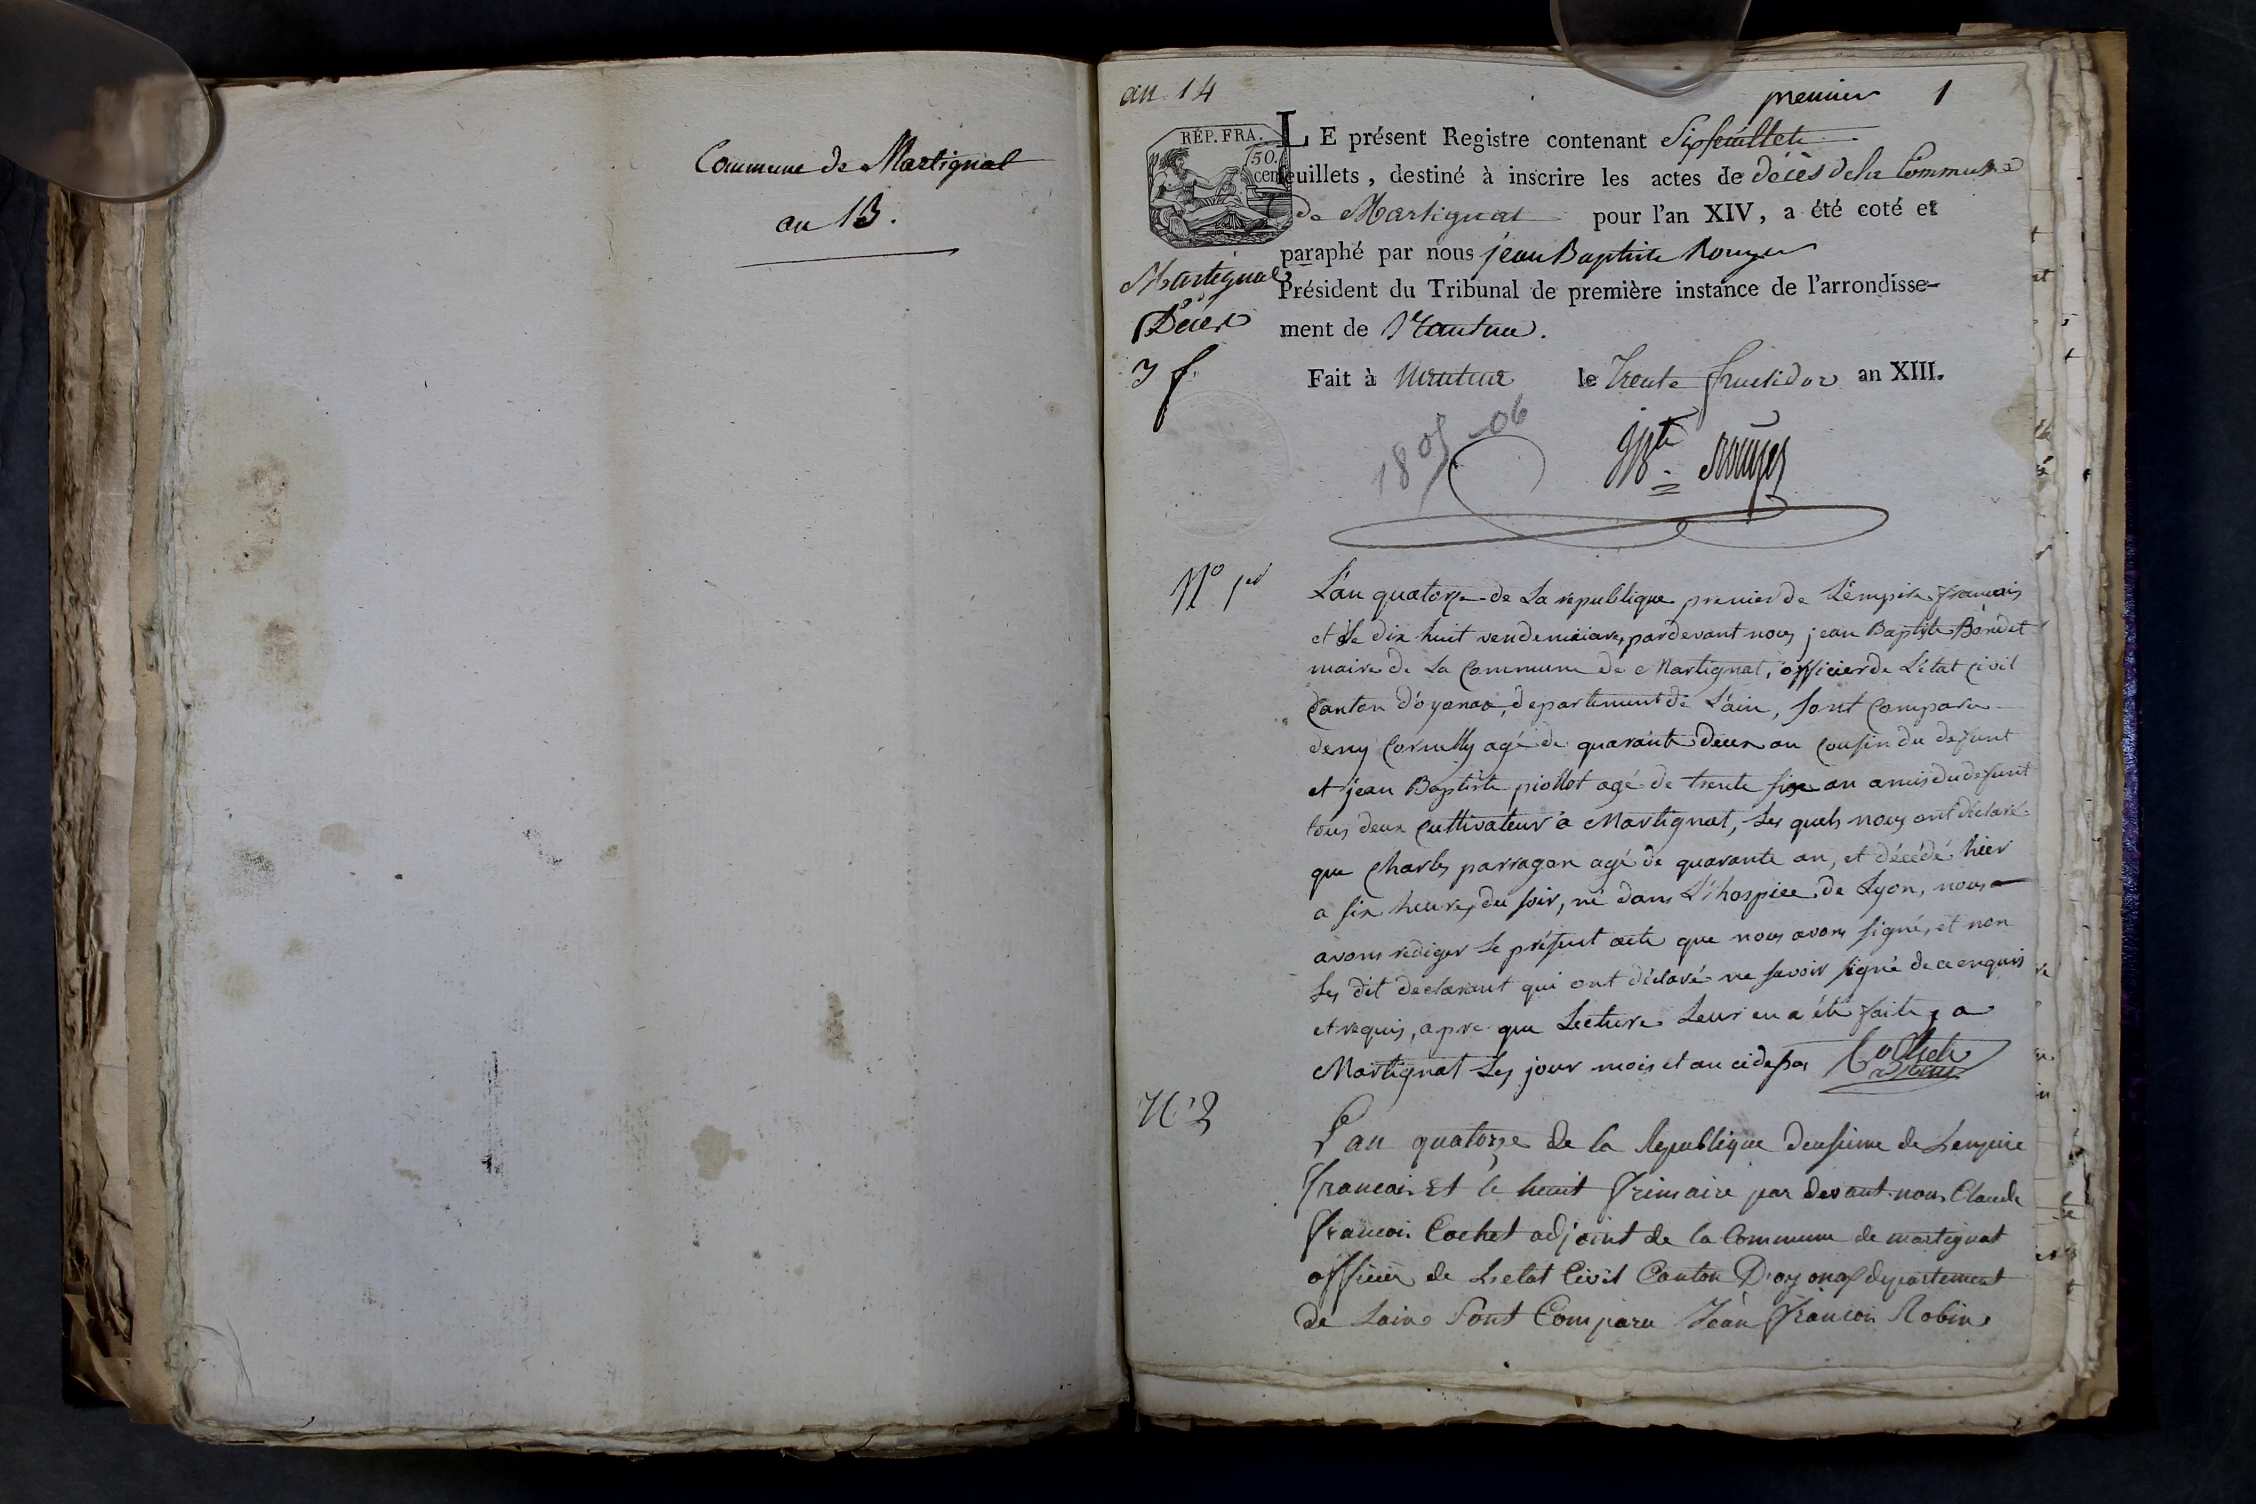 Commune de Martignat
an 13.
an 14
premier 1
RÉP. FRA.
50.
cen
LE présent Registre contenant Six feuillets
feuillets, destiné à inscrire les actes de décès de la Commune
de Martignat pour l'an XIV, a été coté et
paraphé par nous jean Baptiste Rouyer
Président du Tribunal de première instance de l'arrondisse-
ment de Nantua.
Martignat
Décès
3 f.
Fait à Nantua le Trente fructidor an XIII.
1805-06
JBte Rouyer
No 1er
L'an quatorze de La republique premier de L'empire francais
et le dix huit vendemiaire, pardevant nous jean Baptiste Bondet
maire de La Commune de Martignat, officier de L'état civil
Canton d'oyonax, departement de L'ain, sont Comparu
deny Cornelly agé de quarante deux an Cousin du defunt
et jean Baptiste piollet agé de trente six an amis du defunt
tous deux Cultivateur a Martignat, Les quels nous ont déclaré
que Charles parragon agé de quarante an, et décédé hier
a six heures du soir, né dans L'hospice de Lyon, nous
avons rediger Le présent acte que nous avons signé, et non
Les dit declarant qui ont déclaré ne savoir signé de ce enquis
et requis, apre que Lecture Leur en a été faite, a
Martignat Les jour mois et an cidessus
N° 2
L'an quatorze de la Republique deusieme de L'empire
francais Et le huit frimaire par devant nous Claude
francois Cochet adjoint de la Commune de martignat
officier de L'etat Civil Canton D'oyonax departement
de Lain Sont Comparu Jean francois Robin